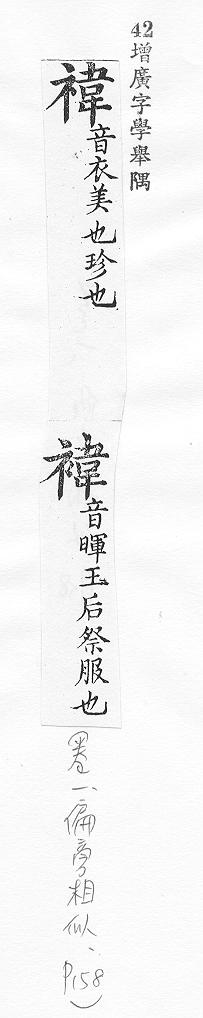 42增廣字學舉隅
禕音衣美也珍也
褘音暉王后祭服也
(卷一、偏旁相似、P158)